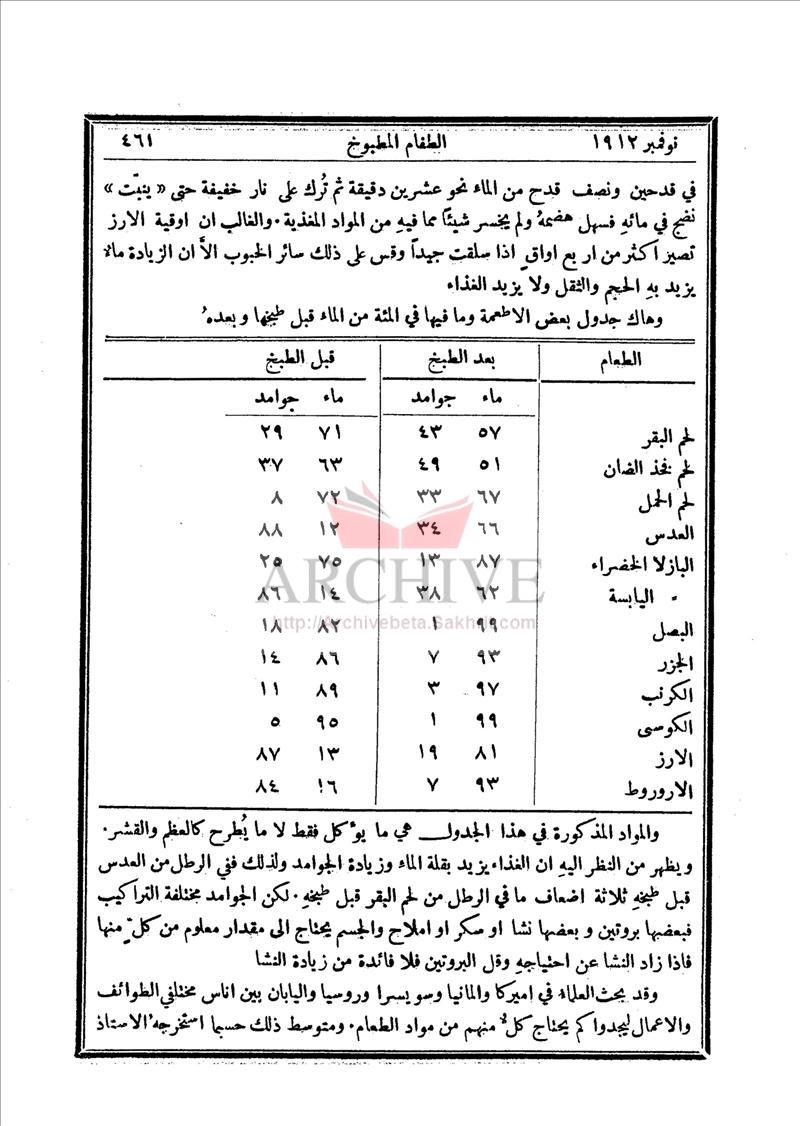 نوفمبر ١٩١٢ الطفام المطبوخ ٤٦١
في قدحين ونصف قدح من الماء نحو عشرين دقيقة ثم تُرك على نار خفيفة حتى « ينبّت »
نضج في مائهِ فسهل هضمهُ ولم يخسر شيئًا مما فيهِ من المواد المغذية . والغالب ان اوقية الارز
تصير اكثر من اربع اواقٍ اذا سلقت جيداً وقس على ذلك سائر الحبوب الاَّ ان الزيادة مالا
يزيد بهِ الحجم والثقل ولا يزيد الغذاء
وهاك جدول بعض الاطعمة وما فيها في المئة من الماء قبل طبخها وبعدهُ
الطعام بعد الطبخ قبل الطبخ
ماء جوامد ماء جوامد
لحم البقر ٥٧ ٤٣ ٧١ ٢٩
لحم فخذ الضان ٥١ ٤٩ ٦٣ ٣٧
لحم الحمل ٦٧ ٣٣ ٧٢ ٨
العدس ٦٦ ٣٤ ١٢ ٨٨
البازلا الخضراء ٨٧ ١٣ ٧٥ ٢٥
" اليابسة ٦٢ ٣٨ ١٤ ٨٦
البصل ٩٩ ١ ٨٢ ١٨
الجزر ٩٣ ٧ ٨٦ ١٤
الكرنب ٩٧ ٣ ٨٩ ١١
الكوسى ٩٩ ١ ٩٥ ٥
الارز ٨١ ١٩ ١٣ ٨٧
الاروروط ٩٣ ٧ ١٦ ٨٤
والمواد المذكورة في هذا الجدول هي ما يؤكل فقط لا ما يُطرح كالعظم والقشر .
ويظهر من النظر اليهِ ان الغذاء يزيد بقلة الماء وزيادة الجوامد ولذلك ففي الرطل من العدس
قبل طبخهِ ثلاثة اضعاف ما في الرطل من لحم البقر قبل طبخهِ . لكن الجوامد مختلفة التراكيب
فبعضها بروتين وبعضها نشا او سكر او املاح والجسم يحتاج الى مقدار معلوم من كلٍّ منها
فاذا زاد النشا عن احتياجهِ وقل البروتين فلا فائدة من زيادة النشا
وقد بحث العلماء في اميركا والمانيا وسويسرا وروسيا واليابان بين اناس مختلفي الطوائف
والاعمال ليجدوا كم يحتاج كلٌّ منهم من مواد الطعام . ومتوسط ذلك حسبما استخرجهُ الاستاذ
ARCHIVE
http://Archivebeta.Sakhrit.com